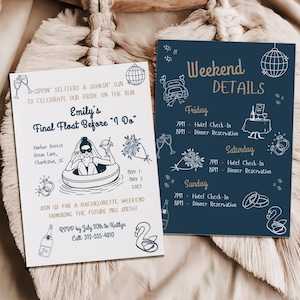 SIPPIN' SELTZERS & SOAKIN' SUN
TO CELEBRATE OUR BRIDE ON THE RUN
Emily's
Final Float Before "I Do"
Harbor Breeze
Ocean Lane,
Charleston, SC
MAY 1
MAY 3
2025
JOIN US FOR A BACHELORETTE WEEKEND
HONORING THE FUTURE MRS. SMITH!
RSVP by July 20th to Kaitlyn
Call: 312-555-4890
Weekend
DETAILS
Friday
7PM - Hotel Check-In
8PM - Dinner Reservation
Saturday
7PM - Hotel Check-In
8PM - Dinner Reservation
Sunday
7PM - Hotel Check-In
8PM - Dinner Reservation